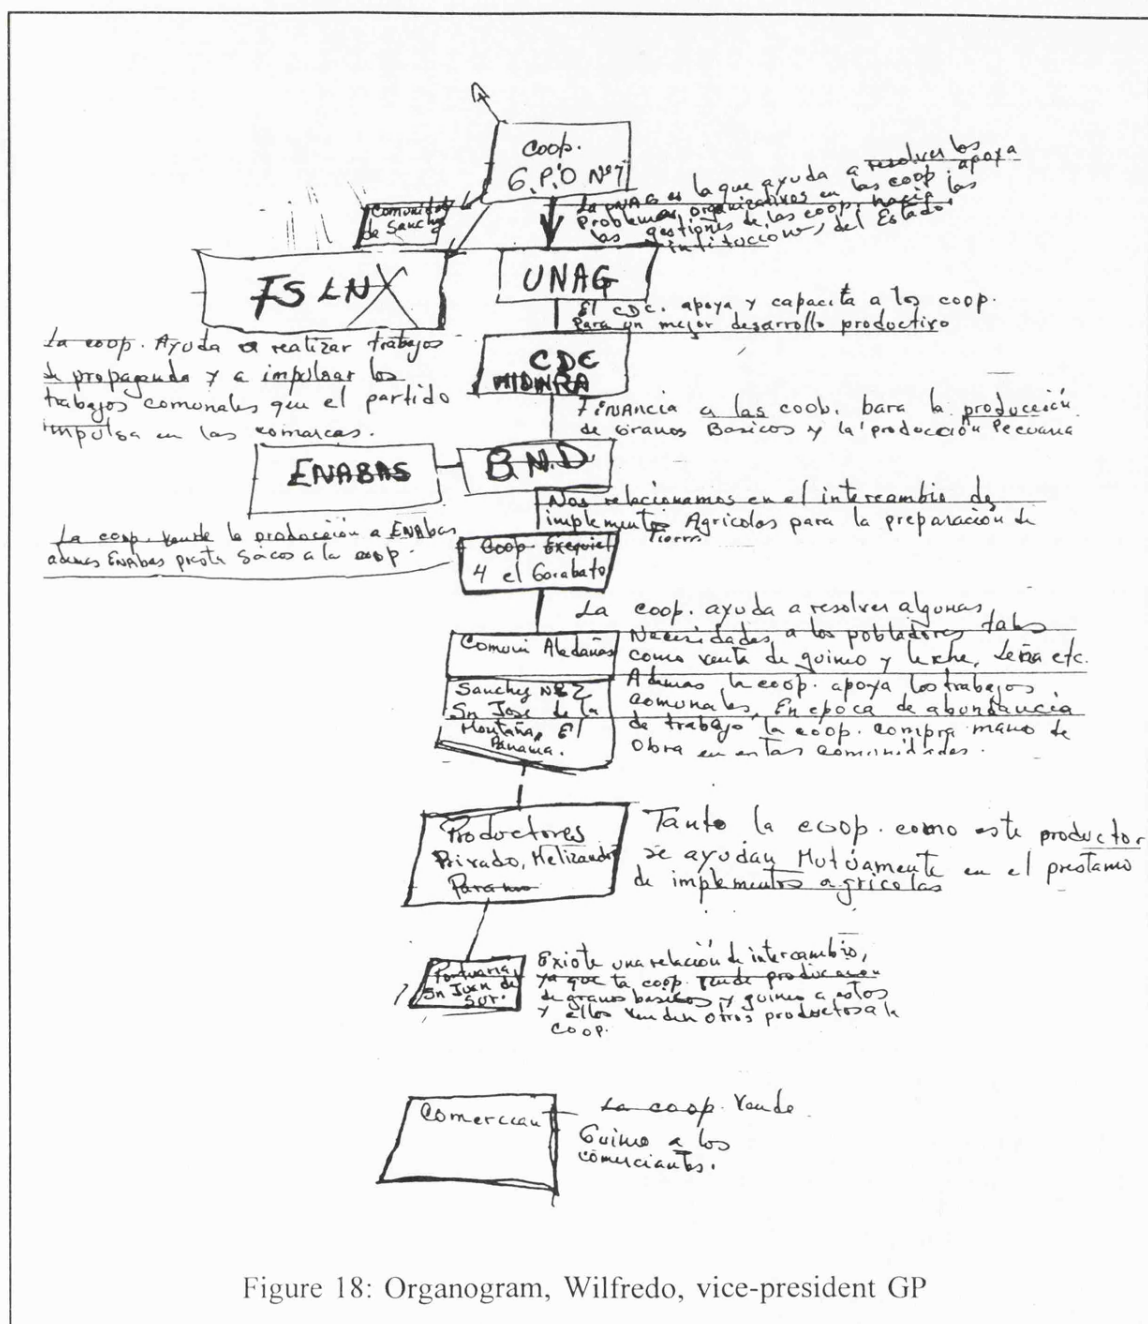 Coop.
G.P.O Nº 7
Comunidad
de Sanchez
La UNAG es la que ayuda a resolver los
Problemas organizativos en las coop. apoya
las gestiones de las coop. hacia las
intituciones del Estado
FSLN
UNAG
El CDC. apoya y capacita a los coop.
Para un mejor desarrollo productivo
La coop. Ayuda a realizar trabajos
de propaganda y a impulsar los
trabajos comunales que el partido
impulsa en las comarcas.
CDC
MIDINRA
Financia a las coob. bara la producción
de Granos Basicos y la producción Pecuaria
ENABAS
B.N.D
Nos relacionamos en el intercambio de
implementos Agricolas para la preparación de
Tierra
La coop. vende la producción a ENAbas
ademas ENAbas presta Sacos a la coop.
Coop Exequiel
4 el Garabato
La coop. ayuda a resolver algunas
Necesidades a los pobladores tales
como venta de guineo y leche, Leña etc.
Ademas la coop. apoya los trabajos
comunales. En epoca de abundancia
de trabajo la coop. compra mano de
obra en estas comunidades.
Comuni Aledañas
Sanchez Nº 2
Sn Jose de la
Montaña, El
Panama.
Productores
Privado, Melizandro
Paramo
Tanto la coop. como este productor
se ayudan Mutuamente en el prestamo
de implementos agricolas
Portuaria
Sn Juan del
Sur.
Existe una relación de intercambio,
ya que la coop. vende producción
de granos basicos y guineo a estos
y ellos venden otros productos a la
coop.
Comercian
La coop. Vende
Guineo a los
comerciantes.
Figure 18: Organogram, Wilfredo, vice-president GP